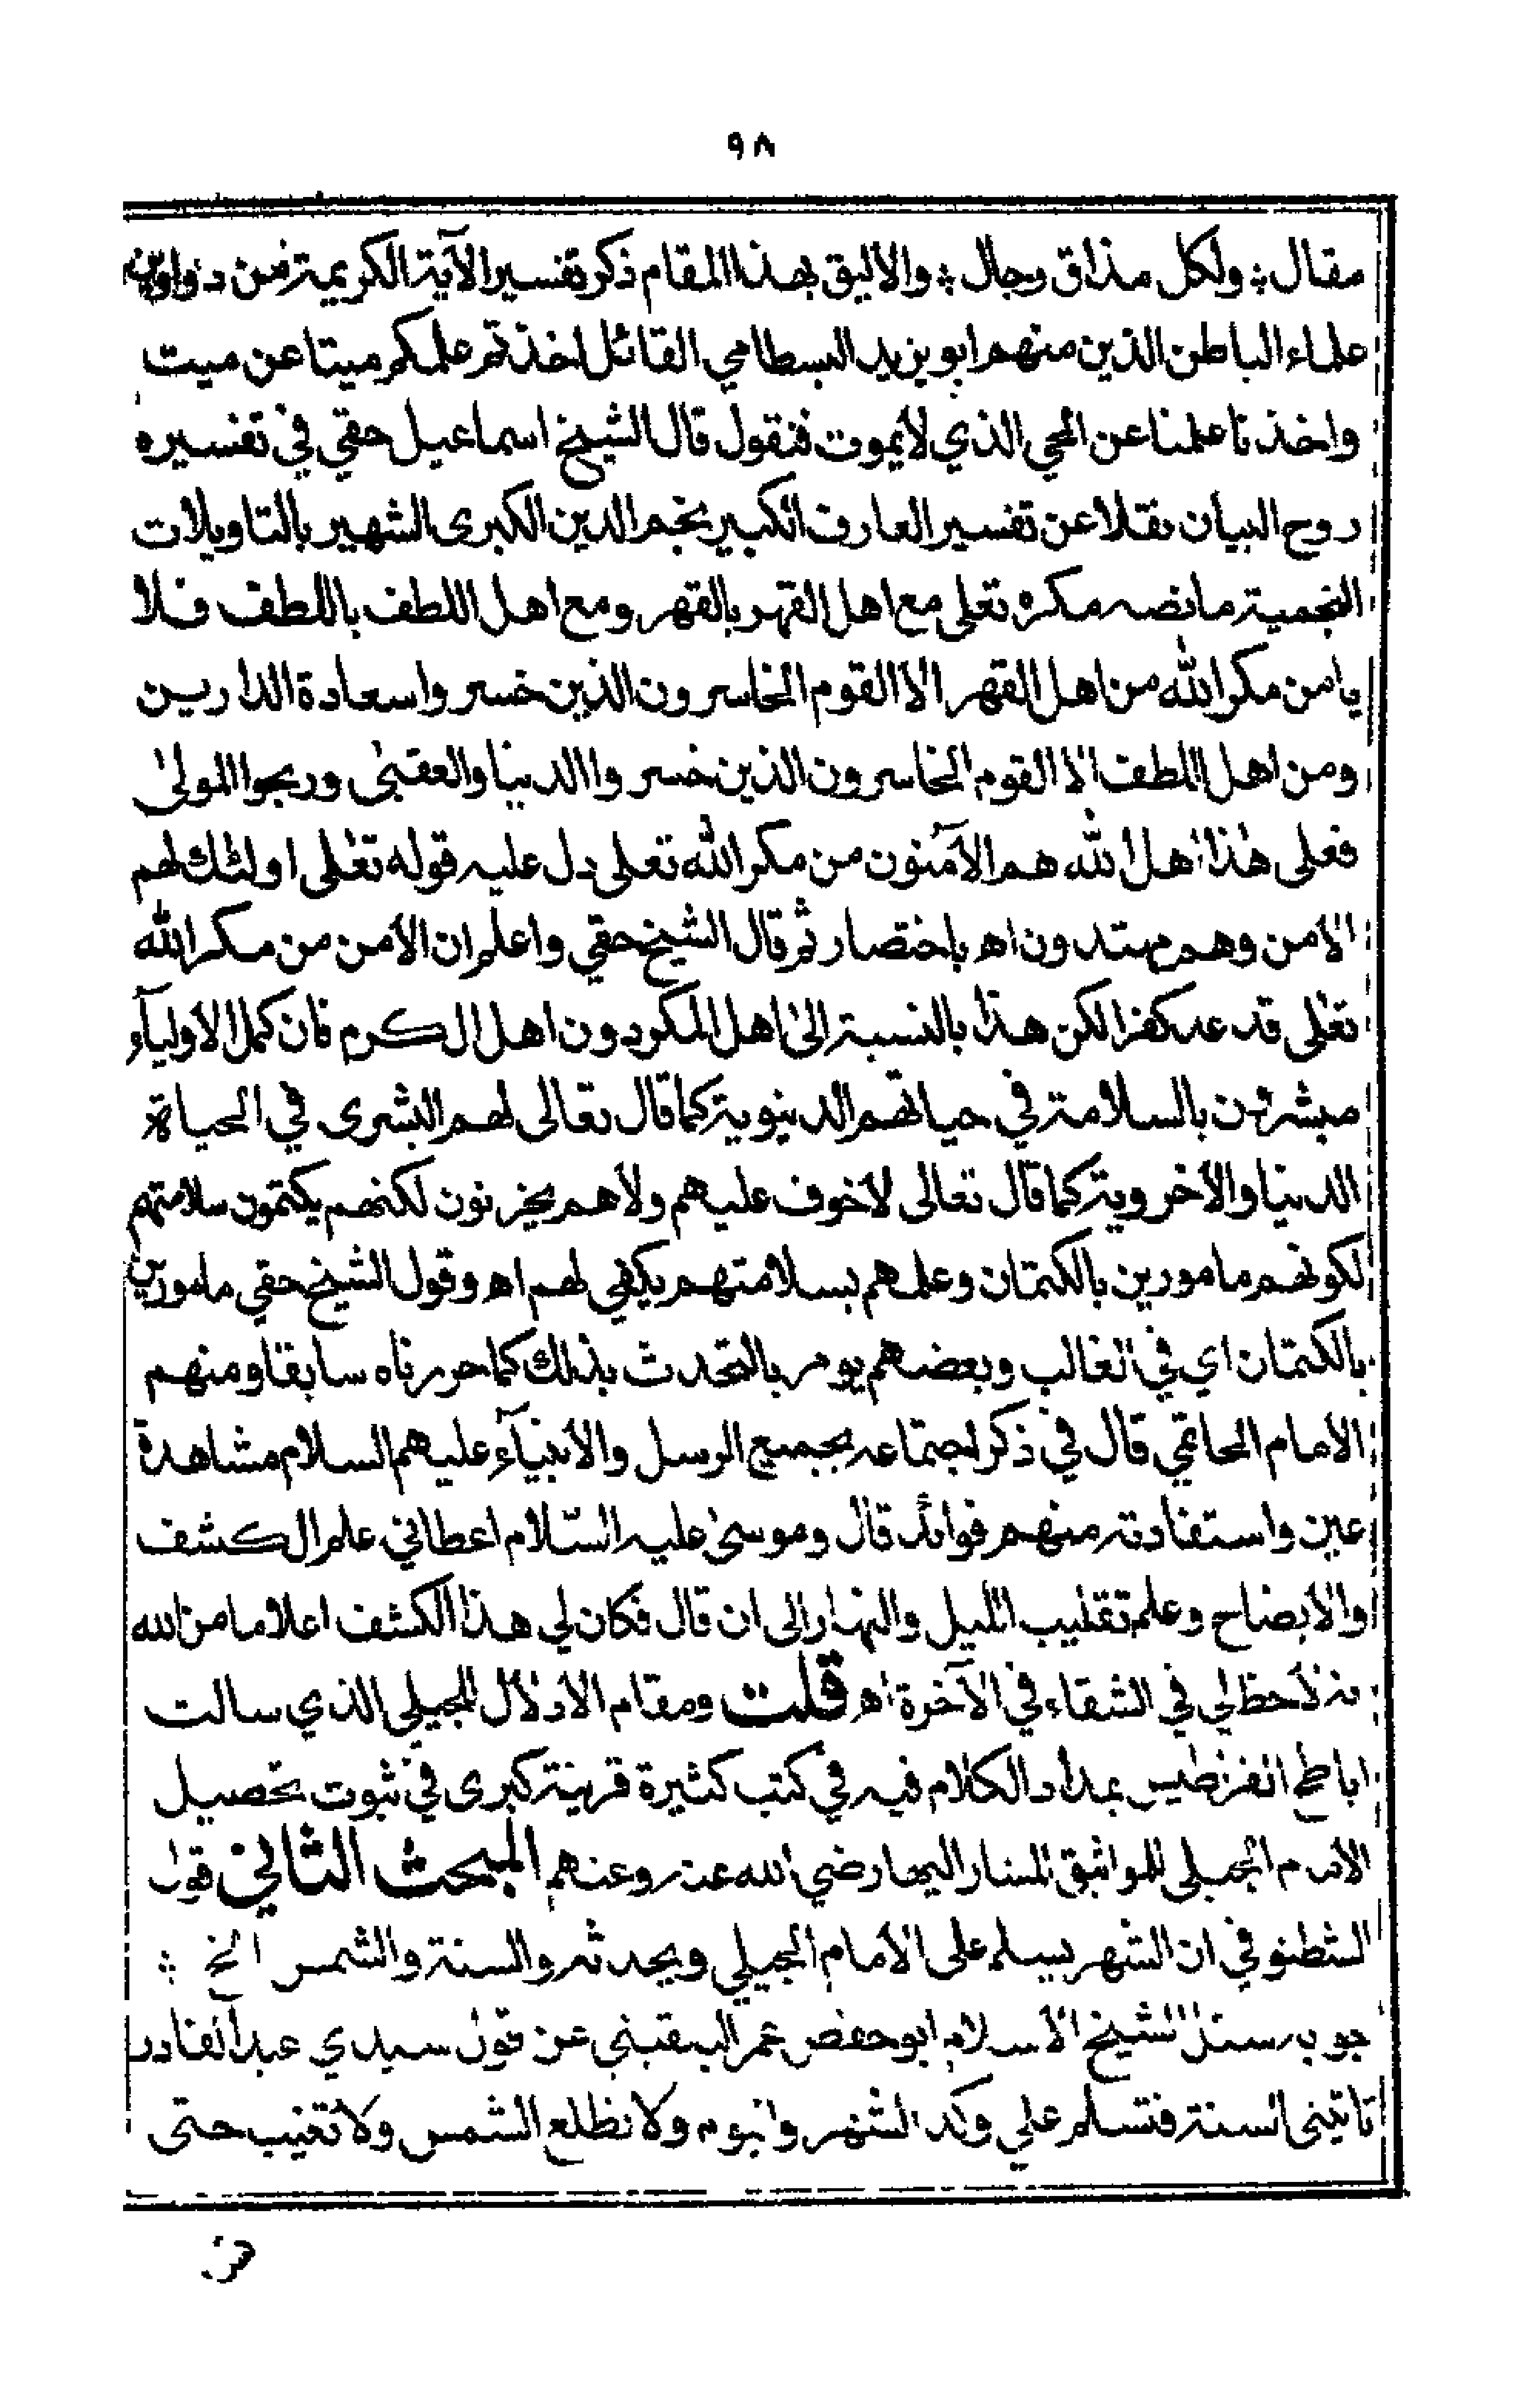 ٩٨
مقال ؞ ولكل مذاق رجال ؞ والأليق بهذا المقام ذكر تفسير الآية الكريمة من دواوين
علماء الباطن الذين منهم ابو يزيد البسطامي القائل اخذتم علمكم ميتا عن ميت
واخذنا علمنا عن الحي الذي لايموت فنقول قال الشيخ اسماعيل حقي في تفسيره
روح البيان نقلا عن تفسير العارف الكبير نجم الدين الكبرى الشهير بالتاويلات
النجمية ما نصه مكره تعلى مع اهل القهر بالقهر ومع اهل اللطف باللطف فلا
يامن مكر الله من اهل القهر الا القوم الخاسرون الذين خسروا سعادة الدارين
ومن اهل اللطف الا القوم الخاسرون الذين خسروا الدنيا والعقبىٰ وربحوا المولىٰ
فعلى هٰذا اهل الله هم الآمنون من مكر الله تعلى دل عليه قوله تعٰلى اولئك لهم
الأمن وهم مهتدون اھ باختصار ثم قال الشيخ حقي واعلم ان الأمن من مكر الله
تعٰلى قد عد كفرا لكن هذا بالنسبة الىٰ اهل المكر دون اهل الكرم فان كمل الاوليآء
مبشرون بالسلامة في حياتهم الدنيوية كما قال تعالى لهم البشرى في الحياة
الدنيا والأخروية كما قال تعالى لاخوف عليهم ولاهم يحزنون لكنهم يكتمون سلامتهم
لكونهم مامورين بالكتمان وعلمهم بسلامتهم يكفي لهم اھ وقول الشيخ حقي مامورين
بالكتمان اي في الغالب وبعضهم يومر بالتحدث بذلك كما حررناه سابقا ومنهم
الأمام الحاتمي قال في ذكر اجتماعه بجميع الرسل والأنبيآء عليهم السلام مشاهدة
عين واستفادته منهم فوائد قال وموسىٰ عليه السّلام اعطاني علم الكشف
والأيضاح وعلم تقليب الليل والنهار الى ان قال فكان لي هذا الكشف اعلاما من الله
بانه لاحظ لي في الشقاء في الآخرة اھ قلت ومقام الادلال الجيلي الذي سالت
اباطح القراطيس بمداد الكلام فيه في كتب كثيرة قرينة كبرى في ثبوت تحصيل
الامام الجيلي للمواثيق المشار اليها رضي الله عنه وعنهم المبحث الثاني قول
الشطنوفي ان الشهر يسلم على الأمام الجيلي ويحدثه والسنة والشمس الخ ؞
جوابه سئل الشيخ الأسلام ابو حفص عمر البلقيني عن قول سيدي عبد القادر
تاتيني السنة فتسلم علي وكذا الشهر واليوم ولا تطلع الشمس ولا تغيب حتى